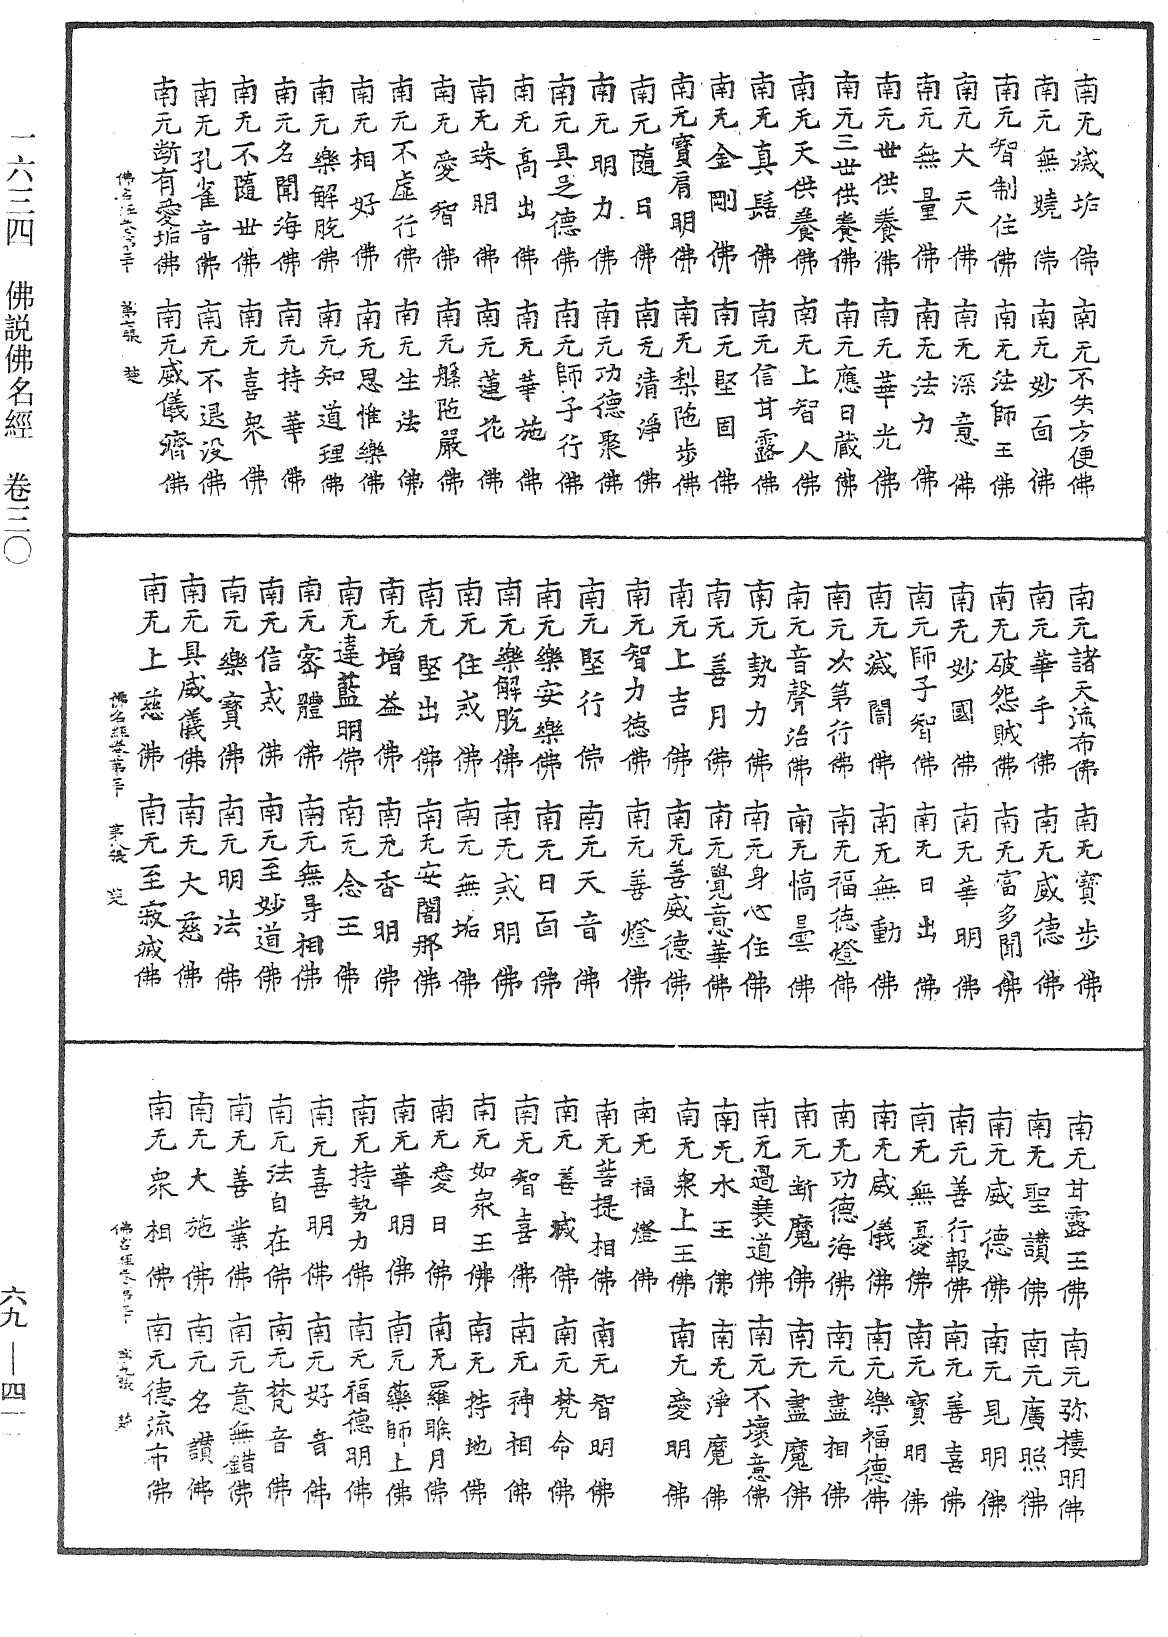 南无滅垢佛 南无不失方便佛
南无無嬈佛 南无妙面佛
南无智制住佛 南无法師王佛
南无大天佛 南无深意佛
南无無量佛 南无法力佛
南无世供養佛 南无華光佛
南无三世供養佛 南无應日藏佛
南无天供養佛 南无上智人佛
南无真髻佛 南无信甘露佛
南无金剛佛 南无堅固佛
南无寶肩明佛 南无梨陁步佛
南无隨日佛 南无清淨佛
南无明力佛 南无功德聚佛
南无具足德佛 南无師子行佛
南无高出佛 南无華施佛
南无珠明佛 南无蓮花佛
南无愛智佛 南无槃陁嚴佛
南无不虛行佛 南无生法佛
南无相好佛 南无思惟樂佛
南无樂解脫佛 南无知道理佛
南无名聞海佛 南无持華佛
南无不隨世佛 南无喜衆佛
南无孔雀音佛 南无不退没佛
南无斷有愛垢佛 南无威儀濟佛
佛名經卷第三十 第七張 楚
南无諸天流布佛 南无寶步佛
南无華手佛 南无威德佛
南无破怨賊佛 南无富多聞佛
南无妙國佛 南无華明佛
南无師子智佛 南无日出佛
南无滅闇佛 南无無動佛
南无次第行佛 南无福德燈佛
南无音聲治佛 南无憍曇佛
南无勢力佛 南无身心住佛
南无善月佛 南无覺意華佛
南无上吉佛 南无善威德佛
南无智力德佛 南无善燈佛
南无堅行佛 南无天音佛
南无樂安樂佛 南无日面佛
南无樂解脫佛 南无戒明佛
南无住戒佛 南无無垢佛
南无堅出佛 南无安闍那佛
南无增益佛 南无香明佛
南无違藍明佛 南无念王佛
南无密體佛 南无無㝵相佛
南无信戒佛 南无至妙道佛
南无樂寶佛 南无明法佛
南无具威儀佛 南无大慈佛
南无上慈佛 南无至寂滅佛
佛名經卷第三十 第八張 楚
南无甘露王佛 南无弥樓明佛
南无聖讚佛 南无廣照佛
南无威德佛 南无見明佛
南无善行報佛 南无善喜佛
南无無憂佛 南无寶明佛
南无威儀佛 南无樂福德佛
南无功德海佛 南无盡相佛
南无斷魔佛 南无盡魔佛
南无過衰道佛 南无不壞意佛
南无水王佛 南无淨魔佛
南无衆上王佛 南无愛明佛
南无福燈佛
南无菩提相佛 南无智明佛
南无善滅佛 南无梵命佛
南无智喜佛 南无神相佛
南无如衆王佛 南无持地佛
南无愛日佛 南无羅睺月佛
南无華明佛 南无藥師上佛
南无持勢力佛 南无福德明佛
南无喜明佛 南无好音佛
南无法自在佛 南无梵音佛
南无善業佛 南无意無錯佛
南无大施佛 南无名讚佛
南无衆相佛 南无德流布佛
佛名經卷第三十 第九張 楚
一六三四 佛說佛名經 卷三〇
六九—四一